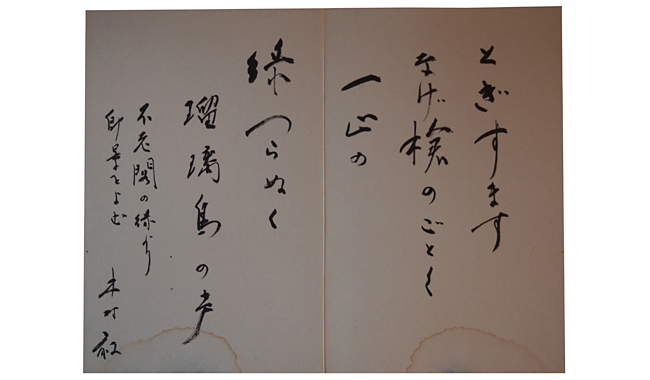 とぎすます
なげ槍のごとく
一山の
緑つらぬく
瑠璃鳥の声
不老閣の縁より
即景をよむ
木村